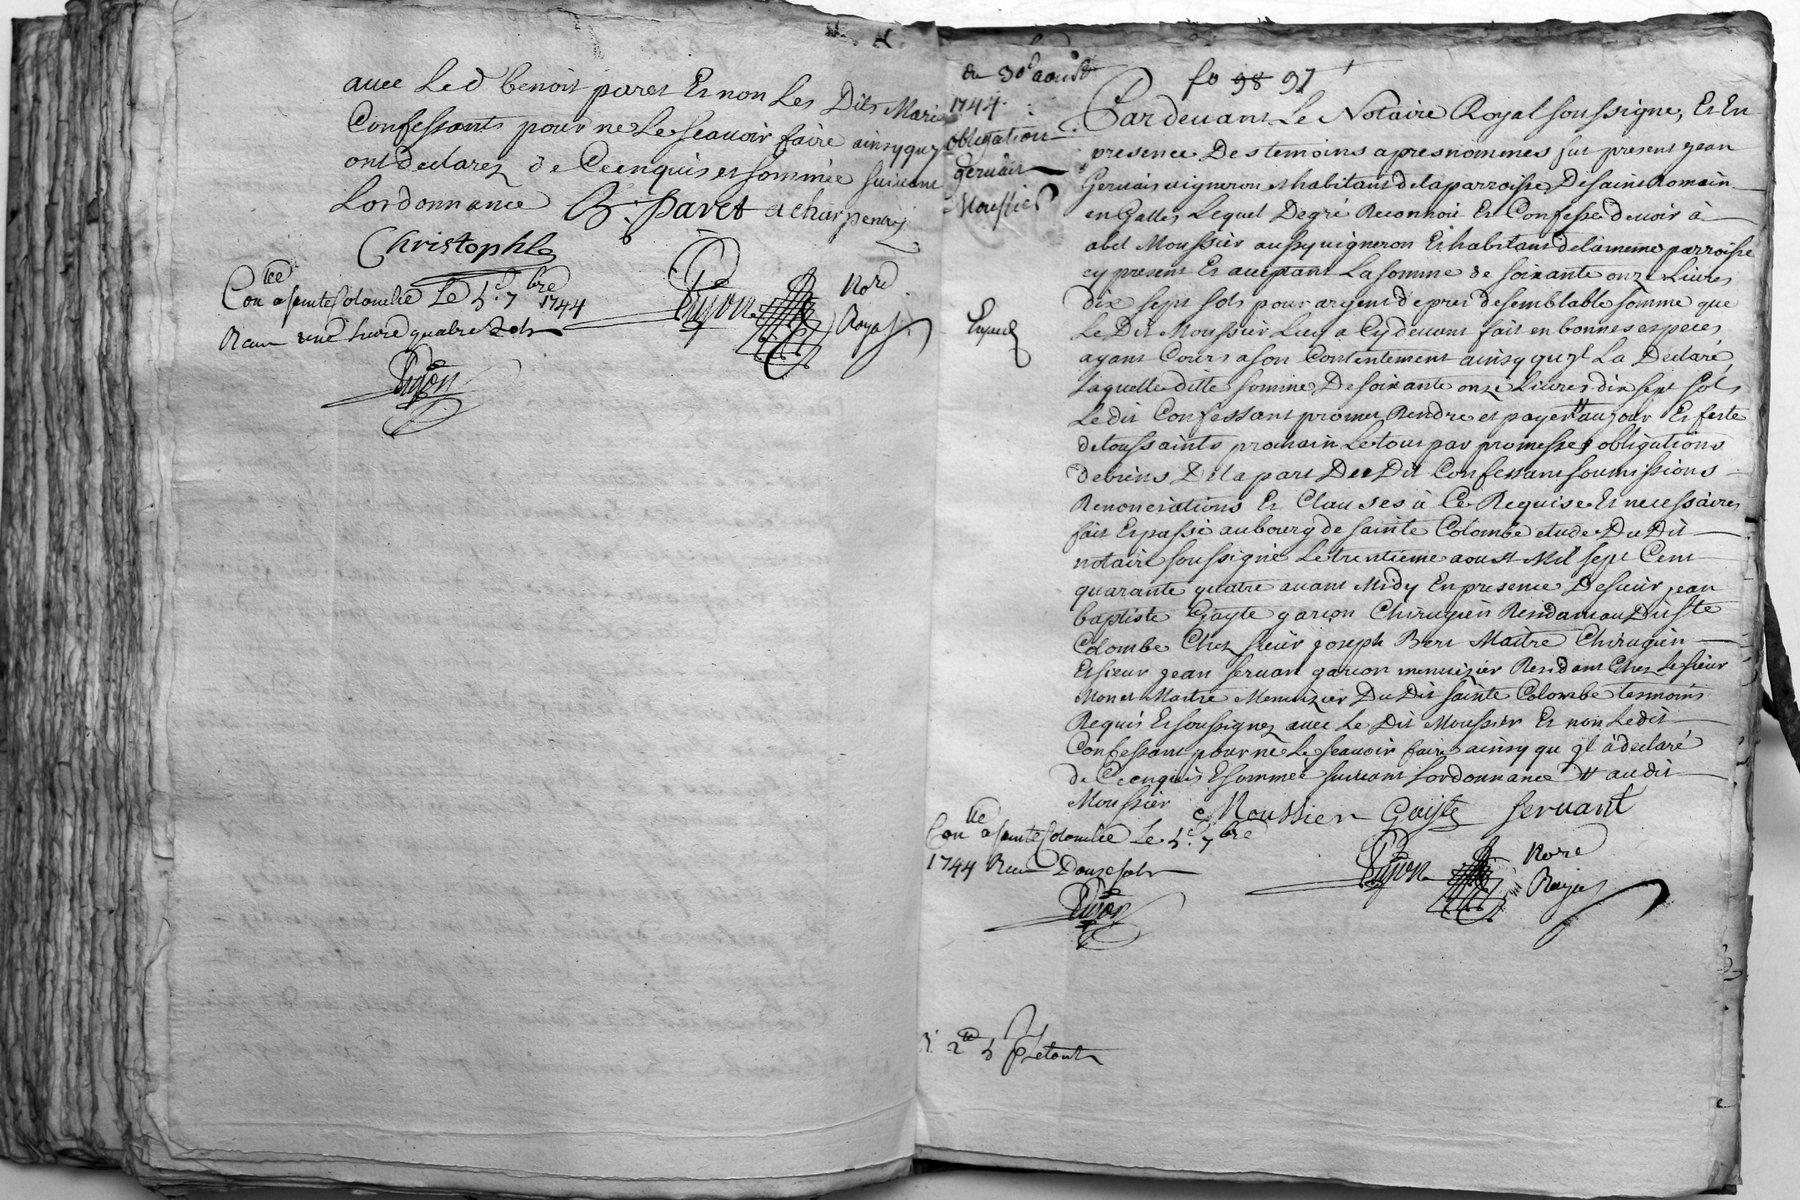 avec Led benoit paret Et non Les Dits Mari
Confessants pour ne Le sçeavoir faire ainsy quz
ont declarez de Ce enquis et sommée suivant
Lordonnance B. Paret acharpenay
Christophle
Con.lle a sainte Colombe Le 5.e 7.bre 1744
Recu une Livre quatre Sols
Pujon Nore
Royal
Pujon
du 30e aoust
1744.
obligation
gervais
Moussier
Expedié
fo 98 97
Pardevant Le Notaire Royal soussigne, Et En
presence Des temoins apres nommes fut present jean
Gervais vigneron et habitant de la parroisse De saint Romain
en Galles, Lequel De gré Reconnoit Et Confesse devoir à
abel Moussier aussy vigneron Et habitant de la meme parroisse
cy present Et acceptant La somme de soixante onze Livres
dix sept sols pour argent de prest de semblable somme que
Le Dit Moussier Luy a Cy devant fait en bonnes especes
ayant Cours a son Contentement ainsy quzl La Declaré
Laquelle ditte somme, De soixante onze Livres dix sept sols
Le dit Confessant promet Rendre et payer # au jour Et feste
de toussaints prochain Le tour par promesses obligations
de biens De la part Du Dit Confessant soumissions
Renonciations Et Clauses à Ce Requise Et necessaires
fait Et passé au bourg de sainte Colombe etude Du Dit
notaire soussigné Le trentieme aoust Mil sept Cent
quarante quatre avant Midy En presence De sieur jean
baptiste Gayte garçon Chirugien Residant au Dit Ste
Colombe Chez sieur joseph Bert Maitre Chirugien
Et sieur jean servant garcon menuizier Residant Chez Le sieur
Monet Maitre Menuizier Du Dit sainte Colombe temoins
Requis Et soussignez avec Le Dit Moussier Et non Le dit
Confessant pour ne Le sçeavoir faire ainsy qu jl a declaré
de Ce enquis Et sommée suivant Lordonnance # au dit
Moussier
Moussier Gayte servant
Con.lle a sainte Colombe Le 5.e 7.bre
1744 Recu Douze sols
Pujon Nore
Royal
Pujon